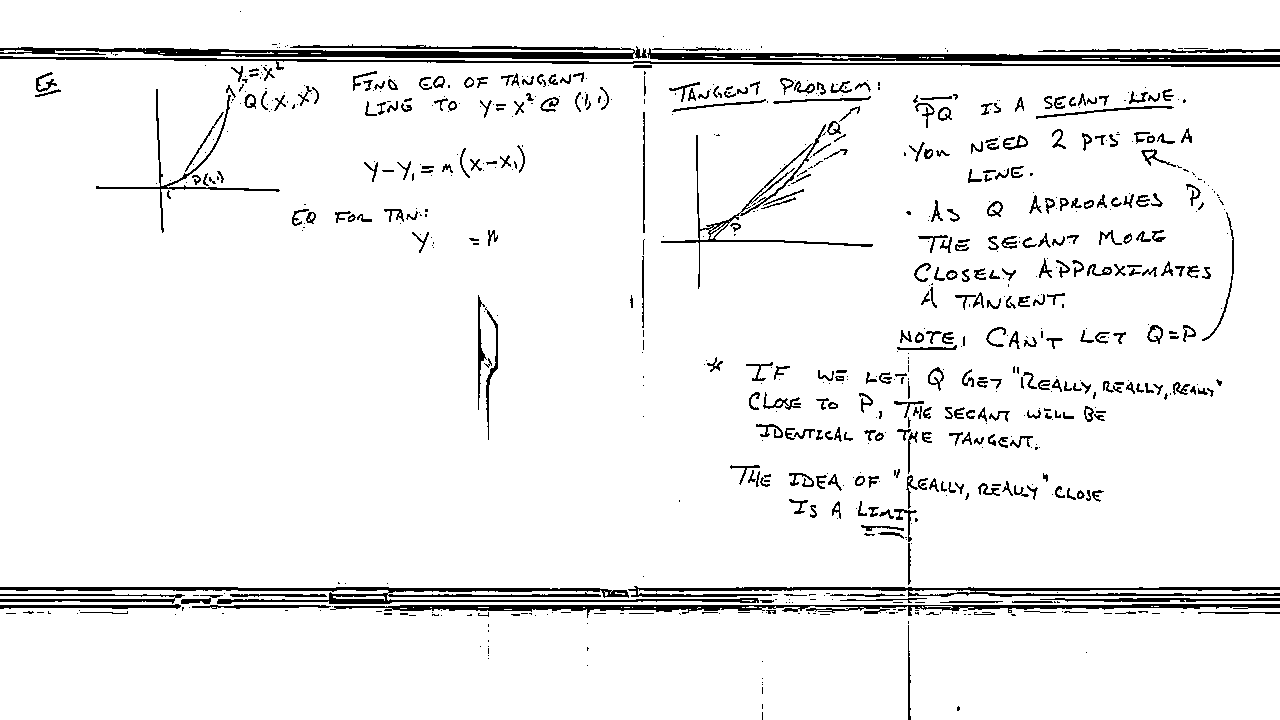 Ex
Y=X²
Q(X,X²)
P(1,1)
1
FIND EQ. OF TANGENT
LINE TO Y=X² @ (1,1)
Y-Y₁=m(X-X₁)
EQ FOR TAN:
Y =
TANGENT PROBLEM:
Q
P
PQ IS A SECANT LINE.
·YOU NEED 2 PTS FOR A
LINE.
· AS Q APPROACHES P,
THE SECANT MORE
CLOSELY APPROXIMATES
A TANGENT.
NOTE: CAN'T LET Q=P
* IF WE LET Q GET "REALLY, REALLY, REALLY"
CLOSE TO P, THE SECANT WILL BE
IDENTICAL TO THE TANGENT.
THE IDEA OF "REALLY, REALLY" CLOSE
IS A LIMIT.